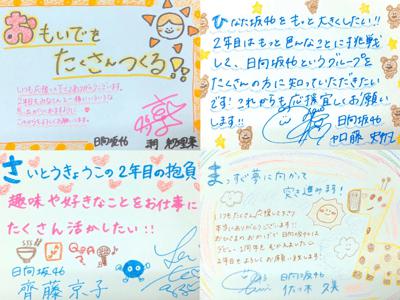 おもいでを
たくさんつくる!!
いつも応援いただきありがとうございます。
これからもよろしくお願いします。
日向坂46
ひなた坂46をもっと大きくしたい!!
2年目はもっと色んなことに挑戦
して、日向坂46というグループを
たくさんの方に知っていただきたい
です!これからも応援宜しくお願い
します!!
日向坂46
加藤 史帆
さいとうきょうこの2年目の抱負
趣味や好きなことをお仕事に
たくさん活かしたい!!
日向坂46
齊藤 京子
まっすぐ夢に向かって
突き進みます!
いつもたくさん応援してくださり
本当にありがとうございます!
日向坂46
佐々木 久美